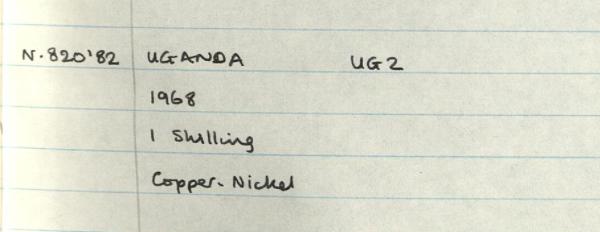 N.820'82 UGANDA UG2
1968
1 Shilling
Copper-Nickel